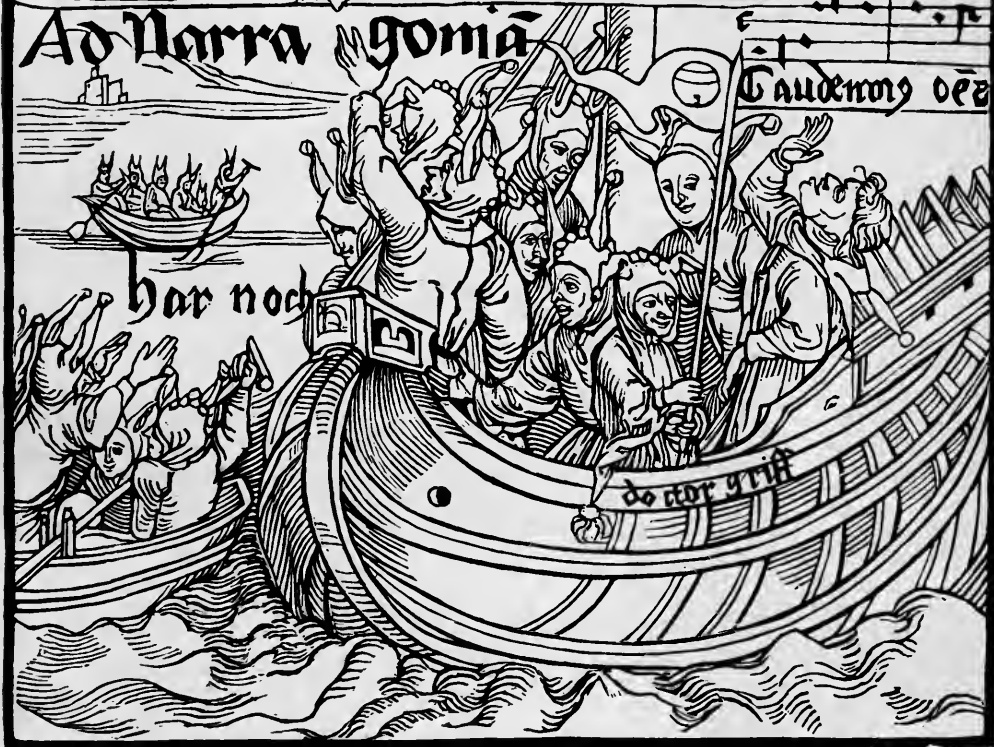 Ad Narra goniā
Gaudeamꝰ oēs
har noch
doctor griff